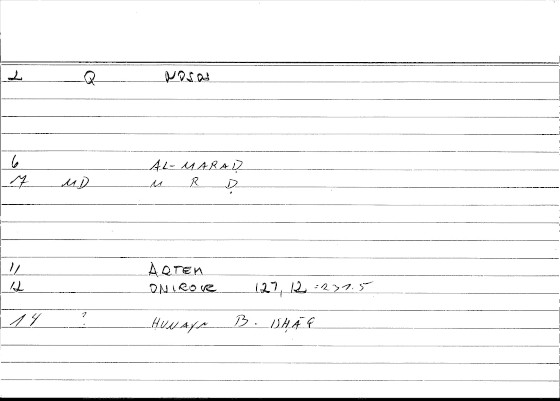 2 Q NOSOS
6 AL-MARAḌ
7 MD M R Ḍ
11 ARTEM
12 ONIROCR 127, 12 = 231.5
14 ? HUNAYN B. ISHĀQ